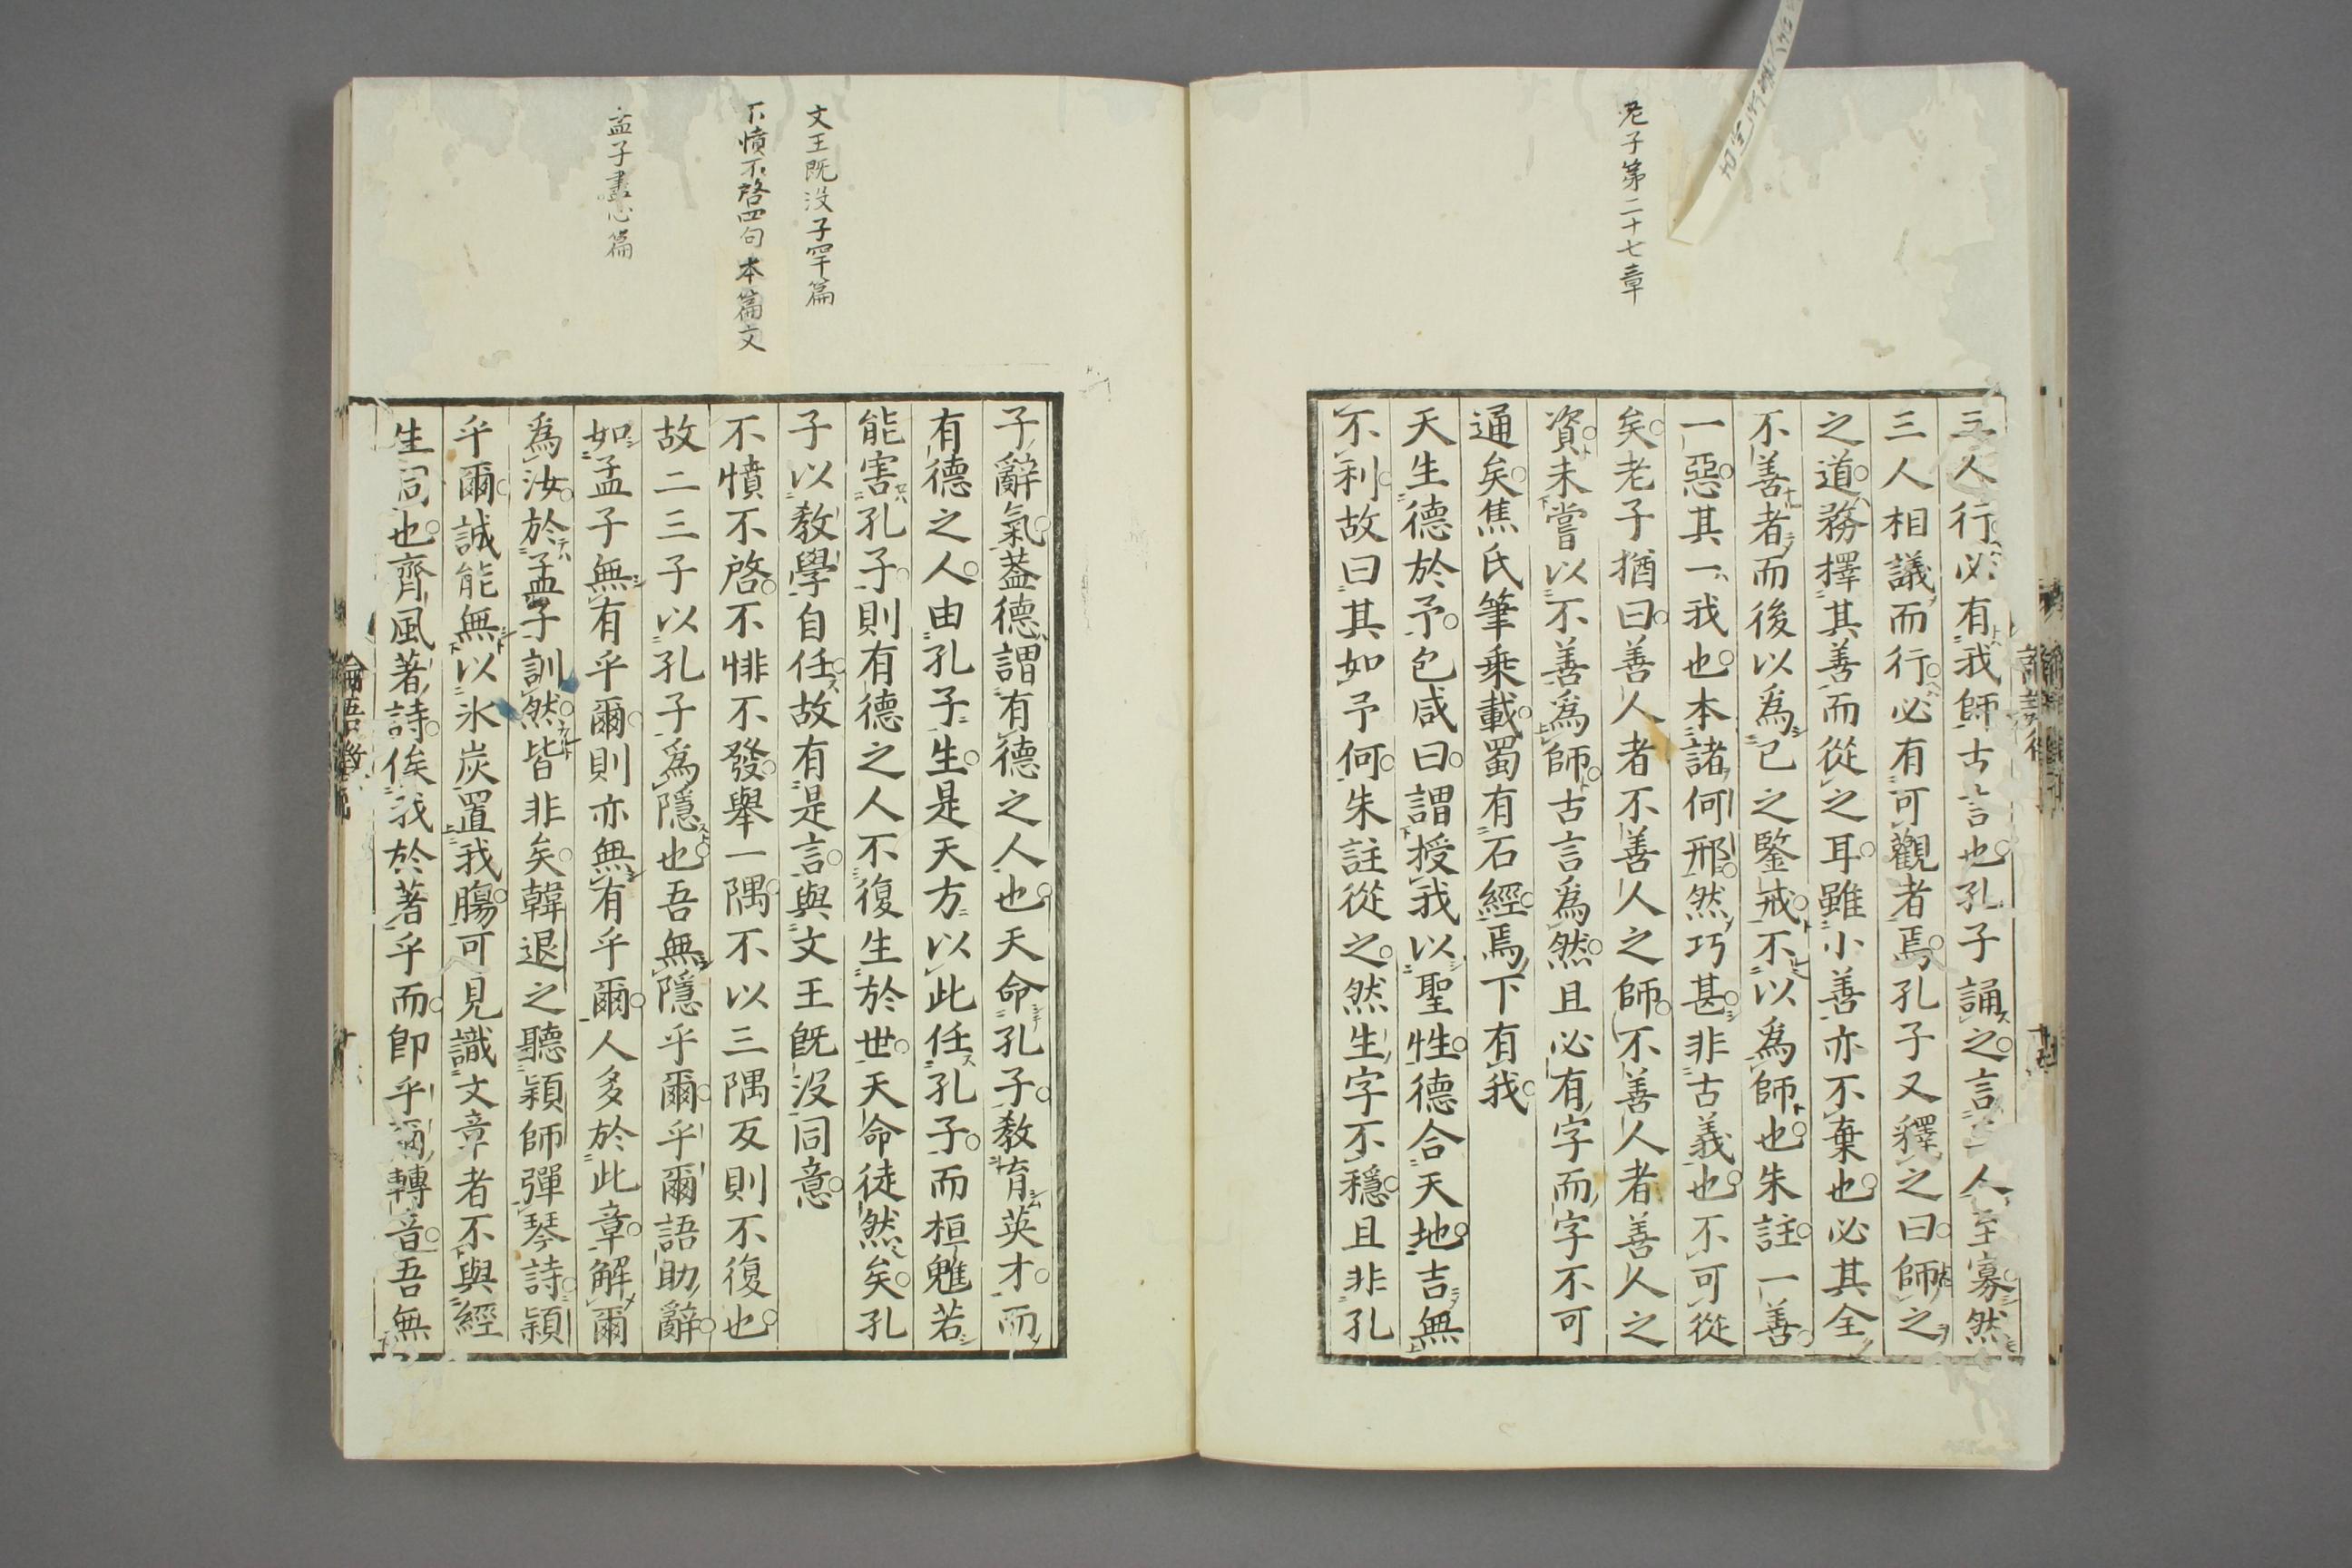 老子第二十七章
三人行必有我師古言也孔子誦之言三人至寡然
三人相議而行必有可觀者焉孔子又釋之曰師之
之道務擇其善而從之耳雖小善亦不棄也必其全
不善者而後以爲己之鑒戒不以爲師也朱註一善
一惡其一我也本諸何邢然巧甚非古義也不可從
矣老子猶曰善人者不善人之師不善人者善人之
資未嘗以不善爲師古言爲然且必有字而字不可
通矣焦氏筆乗載蜀有石經焉下有我
天生德於予包咸曰謂授我以聖性德合天地吉無
不利故曰其如予何朱註從之然生字不穩且非孔
文王既沒子罕篇
不憤不啓四句本篇文
孟子盡心篇
子辭氣蓋德謂有德之人也天命孔子教育英才而
有德之人由孔子生是天方以此任孔子而桓魋若
能害孔子則有德之人不復生於世天命徒然矣孔
子以教學自任故有是言與文王既沒同意
不憤不啓不悱不發舉一隅不以三隅反則不復也
故二三子以孔子爲隱也吾無隱乎爾乎爾語助辭
如孟子無有乎爾則亦無有乎爾人多於此章解爾
爲汝於孟子訓然皆非矣韓退之聽穎師彈琴詩穎
乎爾誠能無以氷炭置我膓可見識文章者不與經
生同也齊風著詩俟我於著乎而卽乎爾轉音吾無